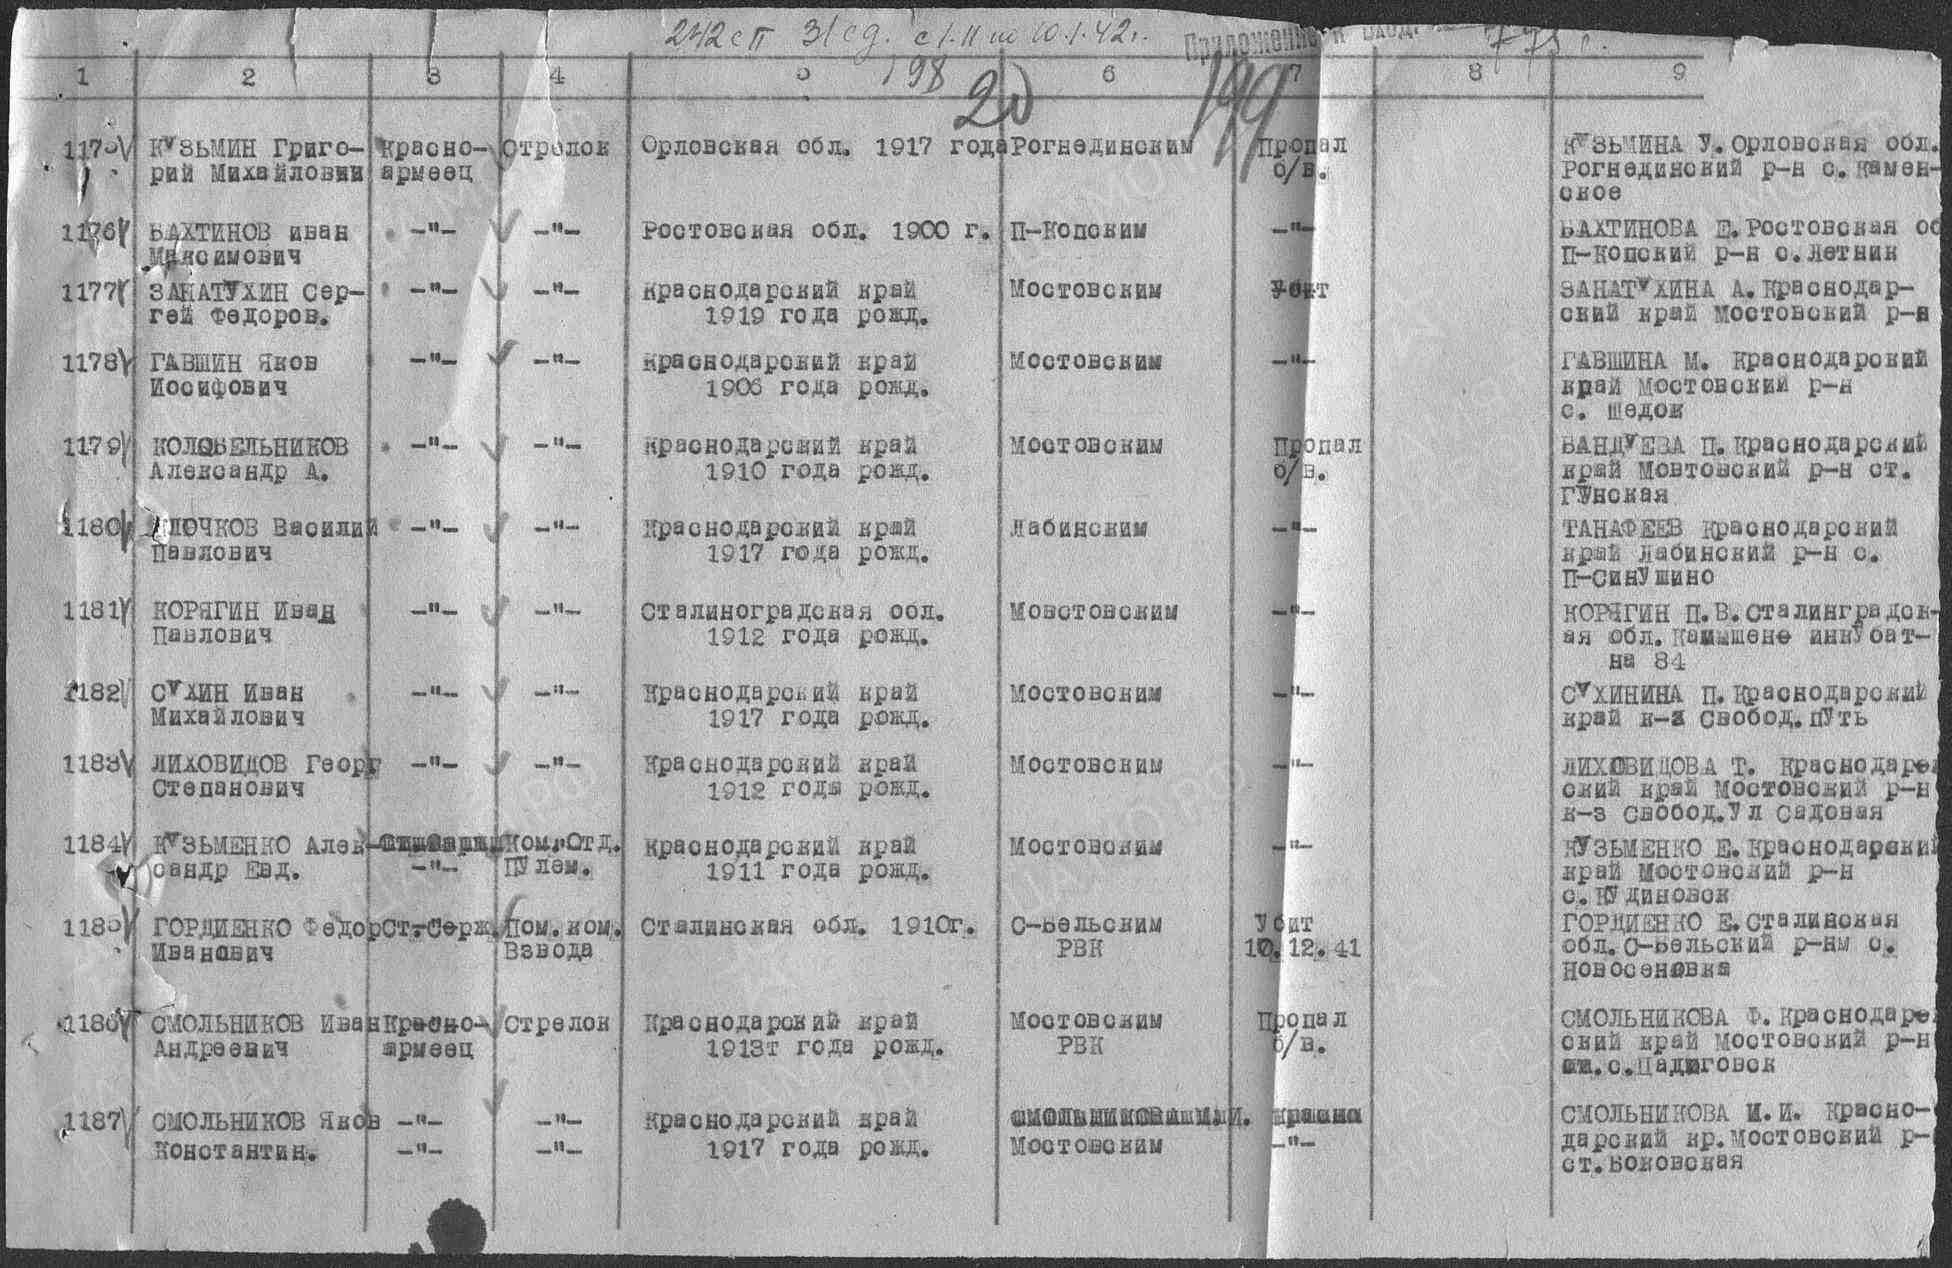 242 сп 31 сд. с 1.11 по 10.1.42 г.
Приложение к вход. 778 с.
1 2 3 4 5 6 7 8 9
198 20 199
1175 КУЗЬМИН Григо- Красно- Стрелок Орловская обл. 1917 года Рогнединским Пропал КУЗЬМИНА У. Орловская обл.
рий Михайлович армеец б/в. Рогнединский р-н с. Камен-
ское
1176 БАХТИНОВ Иван -"- -"- Ростовская обл. 1900 г. П-Копским -"- БАХТИНОВА Е. Ростовская об
Максимович П-Копский р-н с. Летник
1177 ЗАНАТУХИН Сер- -"- -"- Краснодарский край Мостовским Убит ЗАНАТУХИНА А. Краснодар-
гей Федоров. 1919 года рожд. ский край Мостовский р-н
1178 ГАВШИН Яков -"- -"- Краснодарский край Мостовским -"- ГАВШИНА М. Краснодарский
Иосифович 1906 года рожд. край Мостовский р-н
с. Шедок
1179 КОЛОБЕЛЬНИКОВ -"- -"- Краснодарский край Мостовским Пропал БАНДУЕВА П. Краснодарский
Александр А. 1910 года рожд. б/в. край Мовтовский р-н ст.
Гунская
1180 КЛОЧКОВ Василий -"- -"- Краснодарский край Лабинским -"- ТАНАФЕЕВ Краснодарский
Павлович 1917 года рожд. край Лабинский р-н с.
П-Синушино
1181 КОРЯГИН Иван -"- -"- Сталиноградская обл. Мовстовским -"- КОРЯГИН П.В. Сталинградск-
Павлович 1912 года рожд. ая обл. Камышене инкубат-
на 84
1182 СУХИН Иван -"- -"- Краснодарский край Мостовским -"- СУХИНИНА П. Краснодарский
Михайлович 1917 года рожд. край к-з Свобод. путь
1183 ЛИХОВИДОВ Георг -"- -"- Краснодарский край Мостовским -"- ЛИХОВИДОВА Т. Краснодарс
Степанович 1912 года рожд. ский край Мостовский р-н
к-з Свобод. ул Садовая
1184 КУЗЬМЕНКО Алек- Ком. Отд. Краснодарский край Мостовским -"- КУЗЬМЕНКО Е. Краснодарский
сандр Евд. -"- Пулем. 1911 года рожд. край Мостовский р-н
с. Кудиновск
1185 ГОРДИЕНКО Федор Ст. Серж. Пом. ком. Сталинская обл. 1910г. С-Бельским Убит ГОРДИЕНКО Е. Сталинская
Иванович Взвода РВК 10.12.41 обл. С-Бельский р-нм с.
Новосеновка
1186 СМОЛЬНИКОВ Иван Красно- Стрелок Краснодарский край Мостовским Пропал СМОЛЬНИКОВА Ф. Краснодарс
Андреевич армеец 1913т года рожд. РВК б/в. ский край Мостовский р-н
с. Падиговск
1187 СМОЛЬНИКОВ Яков -"- -"- Краснодарский край СМОЛЬНИКОВА И. СМОЛЬНИКОВА И.И. Красно-
Константин. -"- -"- 1917 года рожд. Мостовским -"- дарский кр. Мостовский р-
ст. Боковская